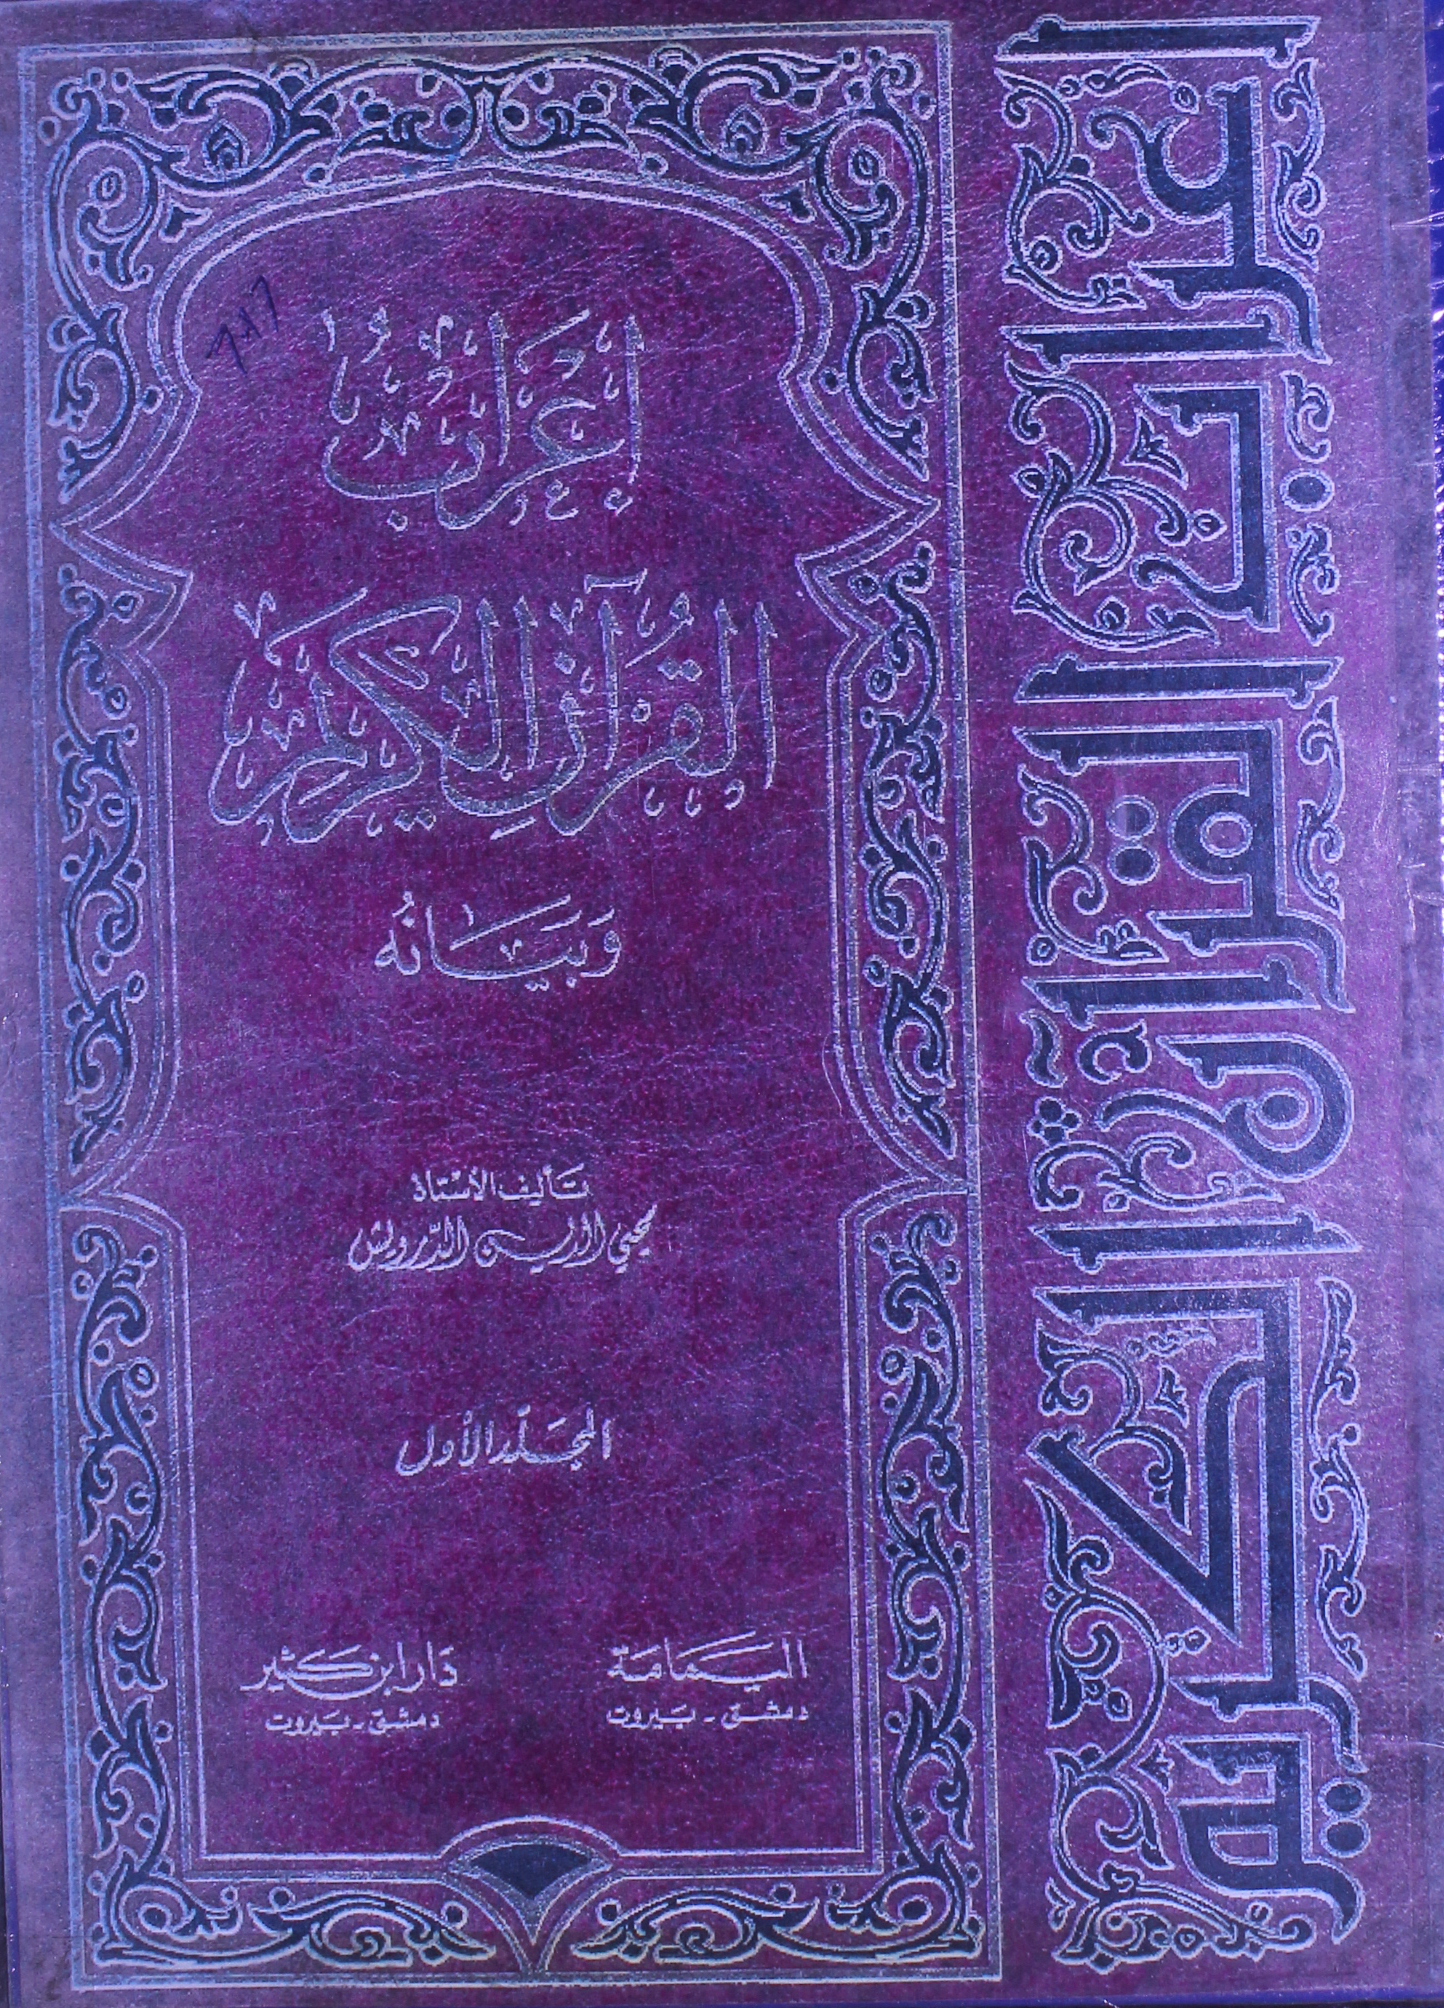 إعرابُ
القُرآنِ الكريم
وَبَيَانُه
تأليف الأستاذ
محيي الدين الدرويش
المجلّد الأول
اليمامة
دمشق - بيروت
دار ابن كثير
دمشق - بيروت
إعراب القرآن الكريم